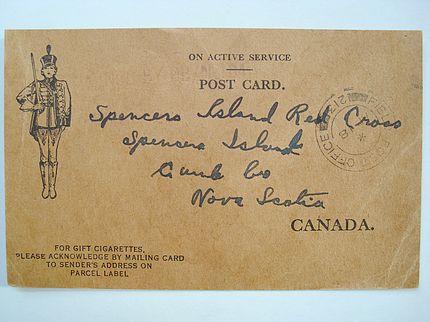 ON ACTIVE SERVICE
POST CARD.
Spencers Island Red Cross
Spencers Island
Cumb Co
Nova Scotia
CANADA.
FOR GIFT CIGARETTES,
PLEASE ACKNOWLEDGE BY MAILING CARD
TO SENDER'S ADDRESS ON
PARCEL LABEL